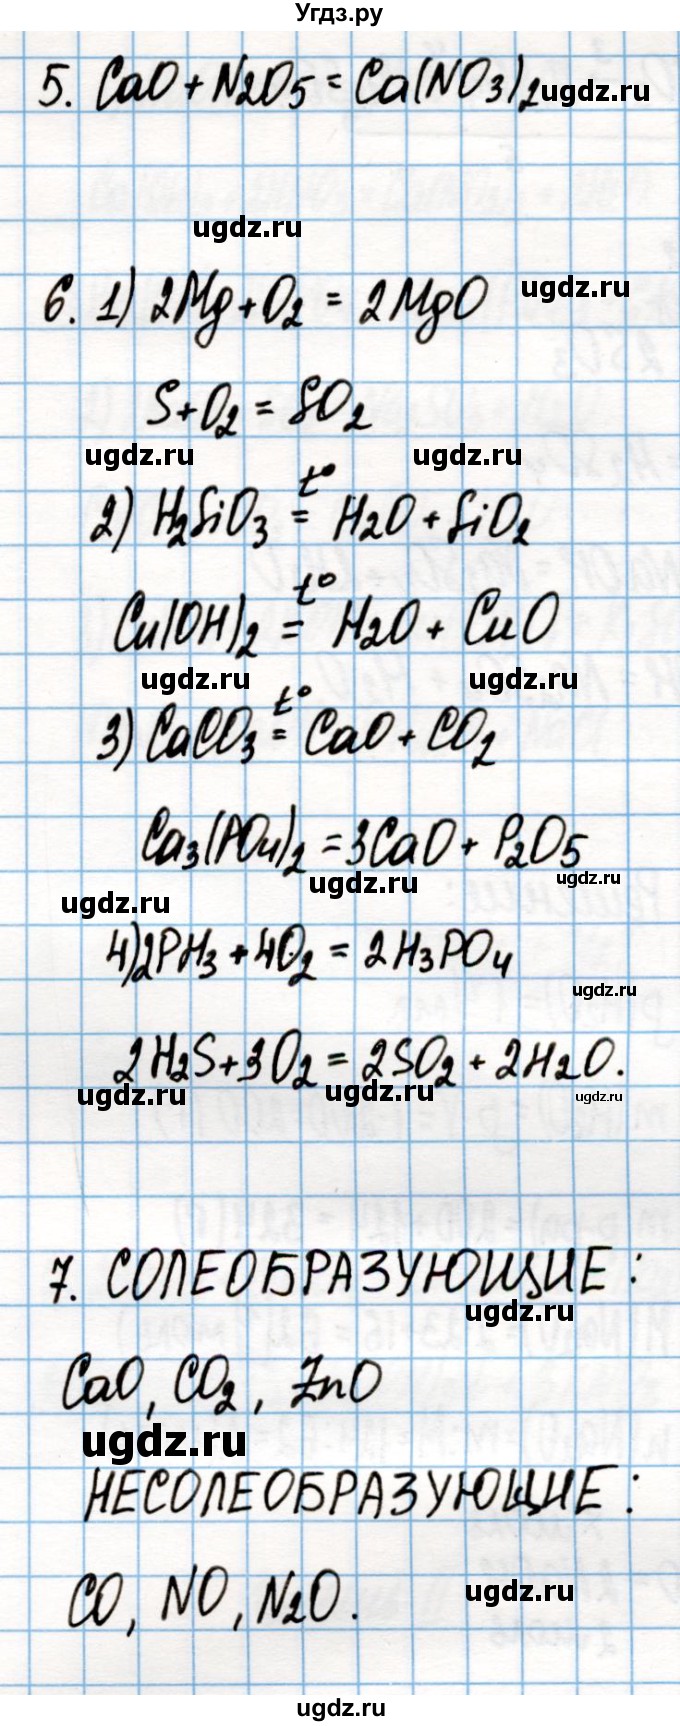 Угдз.ру
5. CaO + N2O5 = Ca(NO3)2
ugdz.ru
ugdz.ru
6. 1) 2Mg + O2 = 2MgO
ugdz.ru
S + O2 = SO2
ugdz.ru ugdz.ru
t°
2) H2SiO3 = H2O + SiO2
t°
Cu(OH)2 = H2O + CuO
ugdz.ru ugdz.ru
t°
3) CaCO3 = CaO + CO2
Ca3(PO4)2 = 3CaO + P2O5
ugdz.ru ugdz.ru
ugdz.ru
4) 2PH3 + 4O2 = 2H3PO4
ugdz.ru
2H2S + 3O2 = 2SO2 + 2H2O.
ugdz.ru ugdz.ru ugdz.ru
7. СОЛЕОБРАЗУЮЩИЕ:
ugdz.ru
CaO, CO2, ZnO
ugdz.ru
НЕСОЛЕОБРАЗУЮЩИЕ:
CO, NO, N2O.
ugdz.ru
ugdz.ru